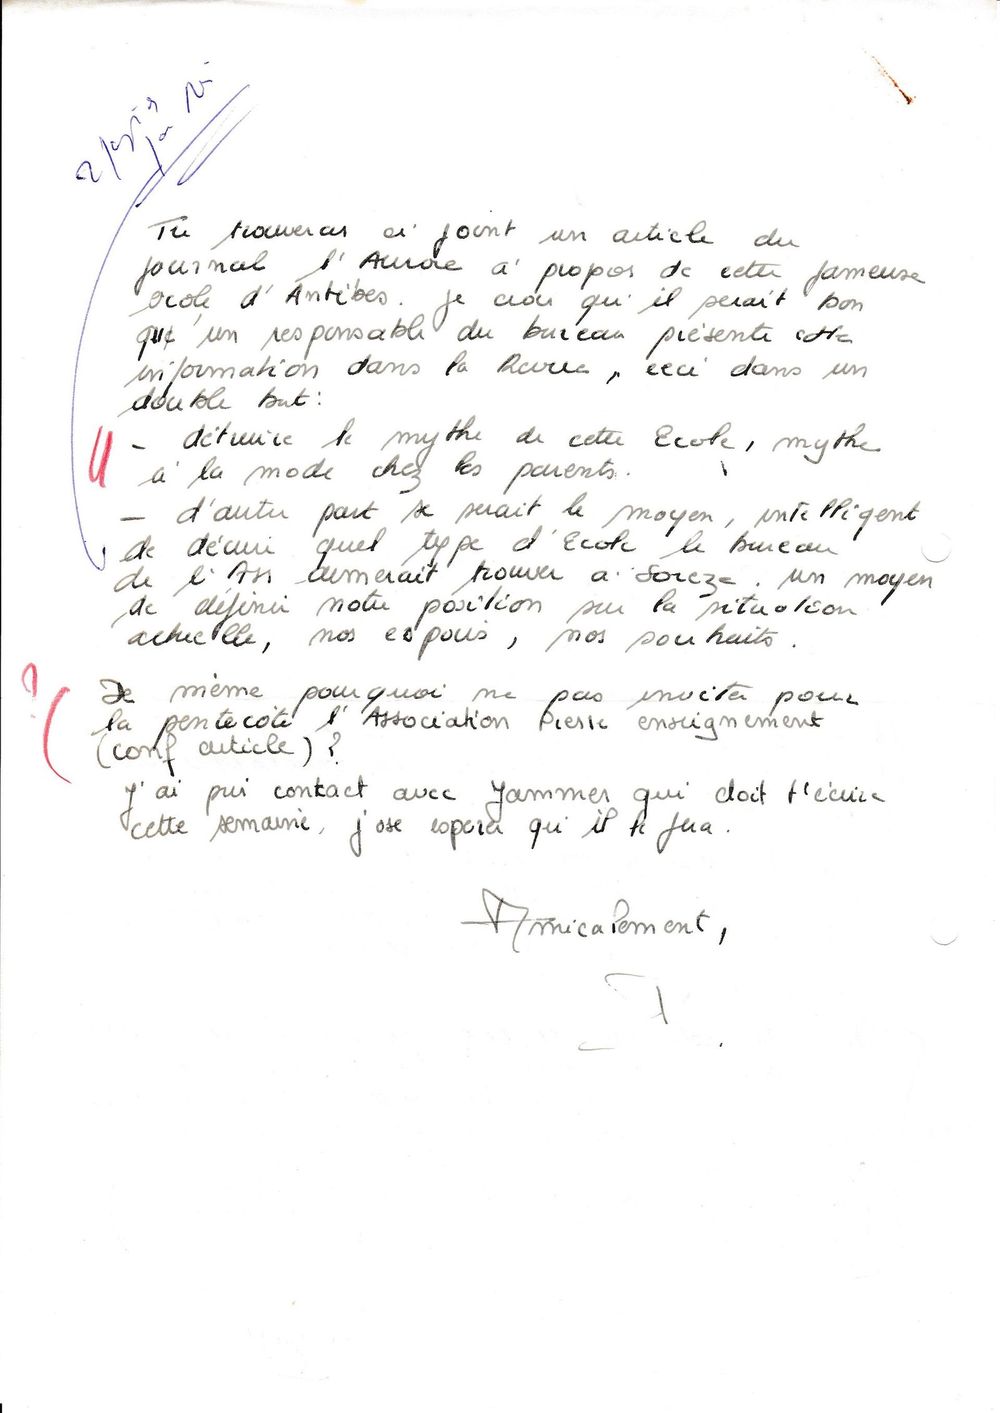 Tu trouveras ci joint un article du
journal l'Aurore à propos de cette fameuse
école d'Antibes. Je crois qu'il serait bon
qu'un responsable du bureau présente cette
information dans la Revue, ceci dans un
double but:
- détruire le mythe de cette Ecole, mythe
à la mode chez les parents.
- d'autre part se serait le moyen, intelligent
de décrire quel type d'Ecole le bureau
de l'Ass aimerait trouver à Sorèze. un moyen
de définir notre position sur la situation
actuelle, nos espoirs, nos souhaits.
? De même pourquoi ne pas inviter pour
la pentecôte l'Association Pierre enseignement
(conf article) ?
J'ai pris contact avec Jammes qui doit t'écrire
cette semaine, j'ose espérer qu'il le fera.
Amicalement,